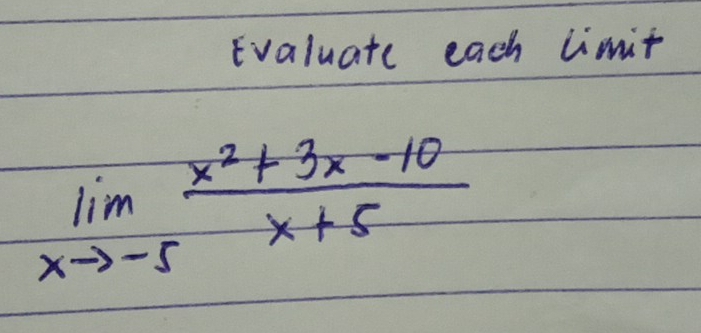 Evaluate each limit
lim x→-5 (x² + 3x - 10) / (x + 5)